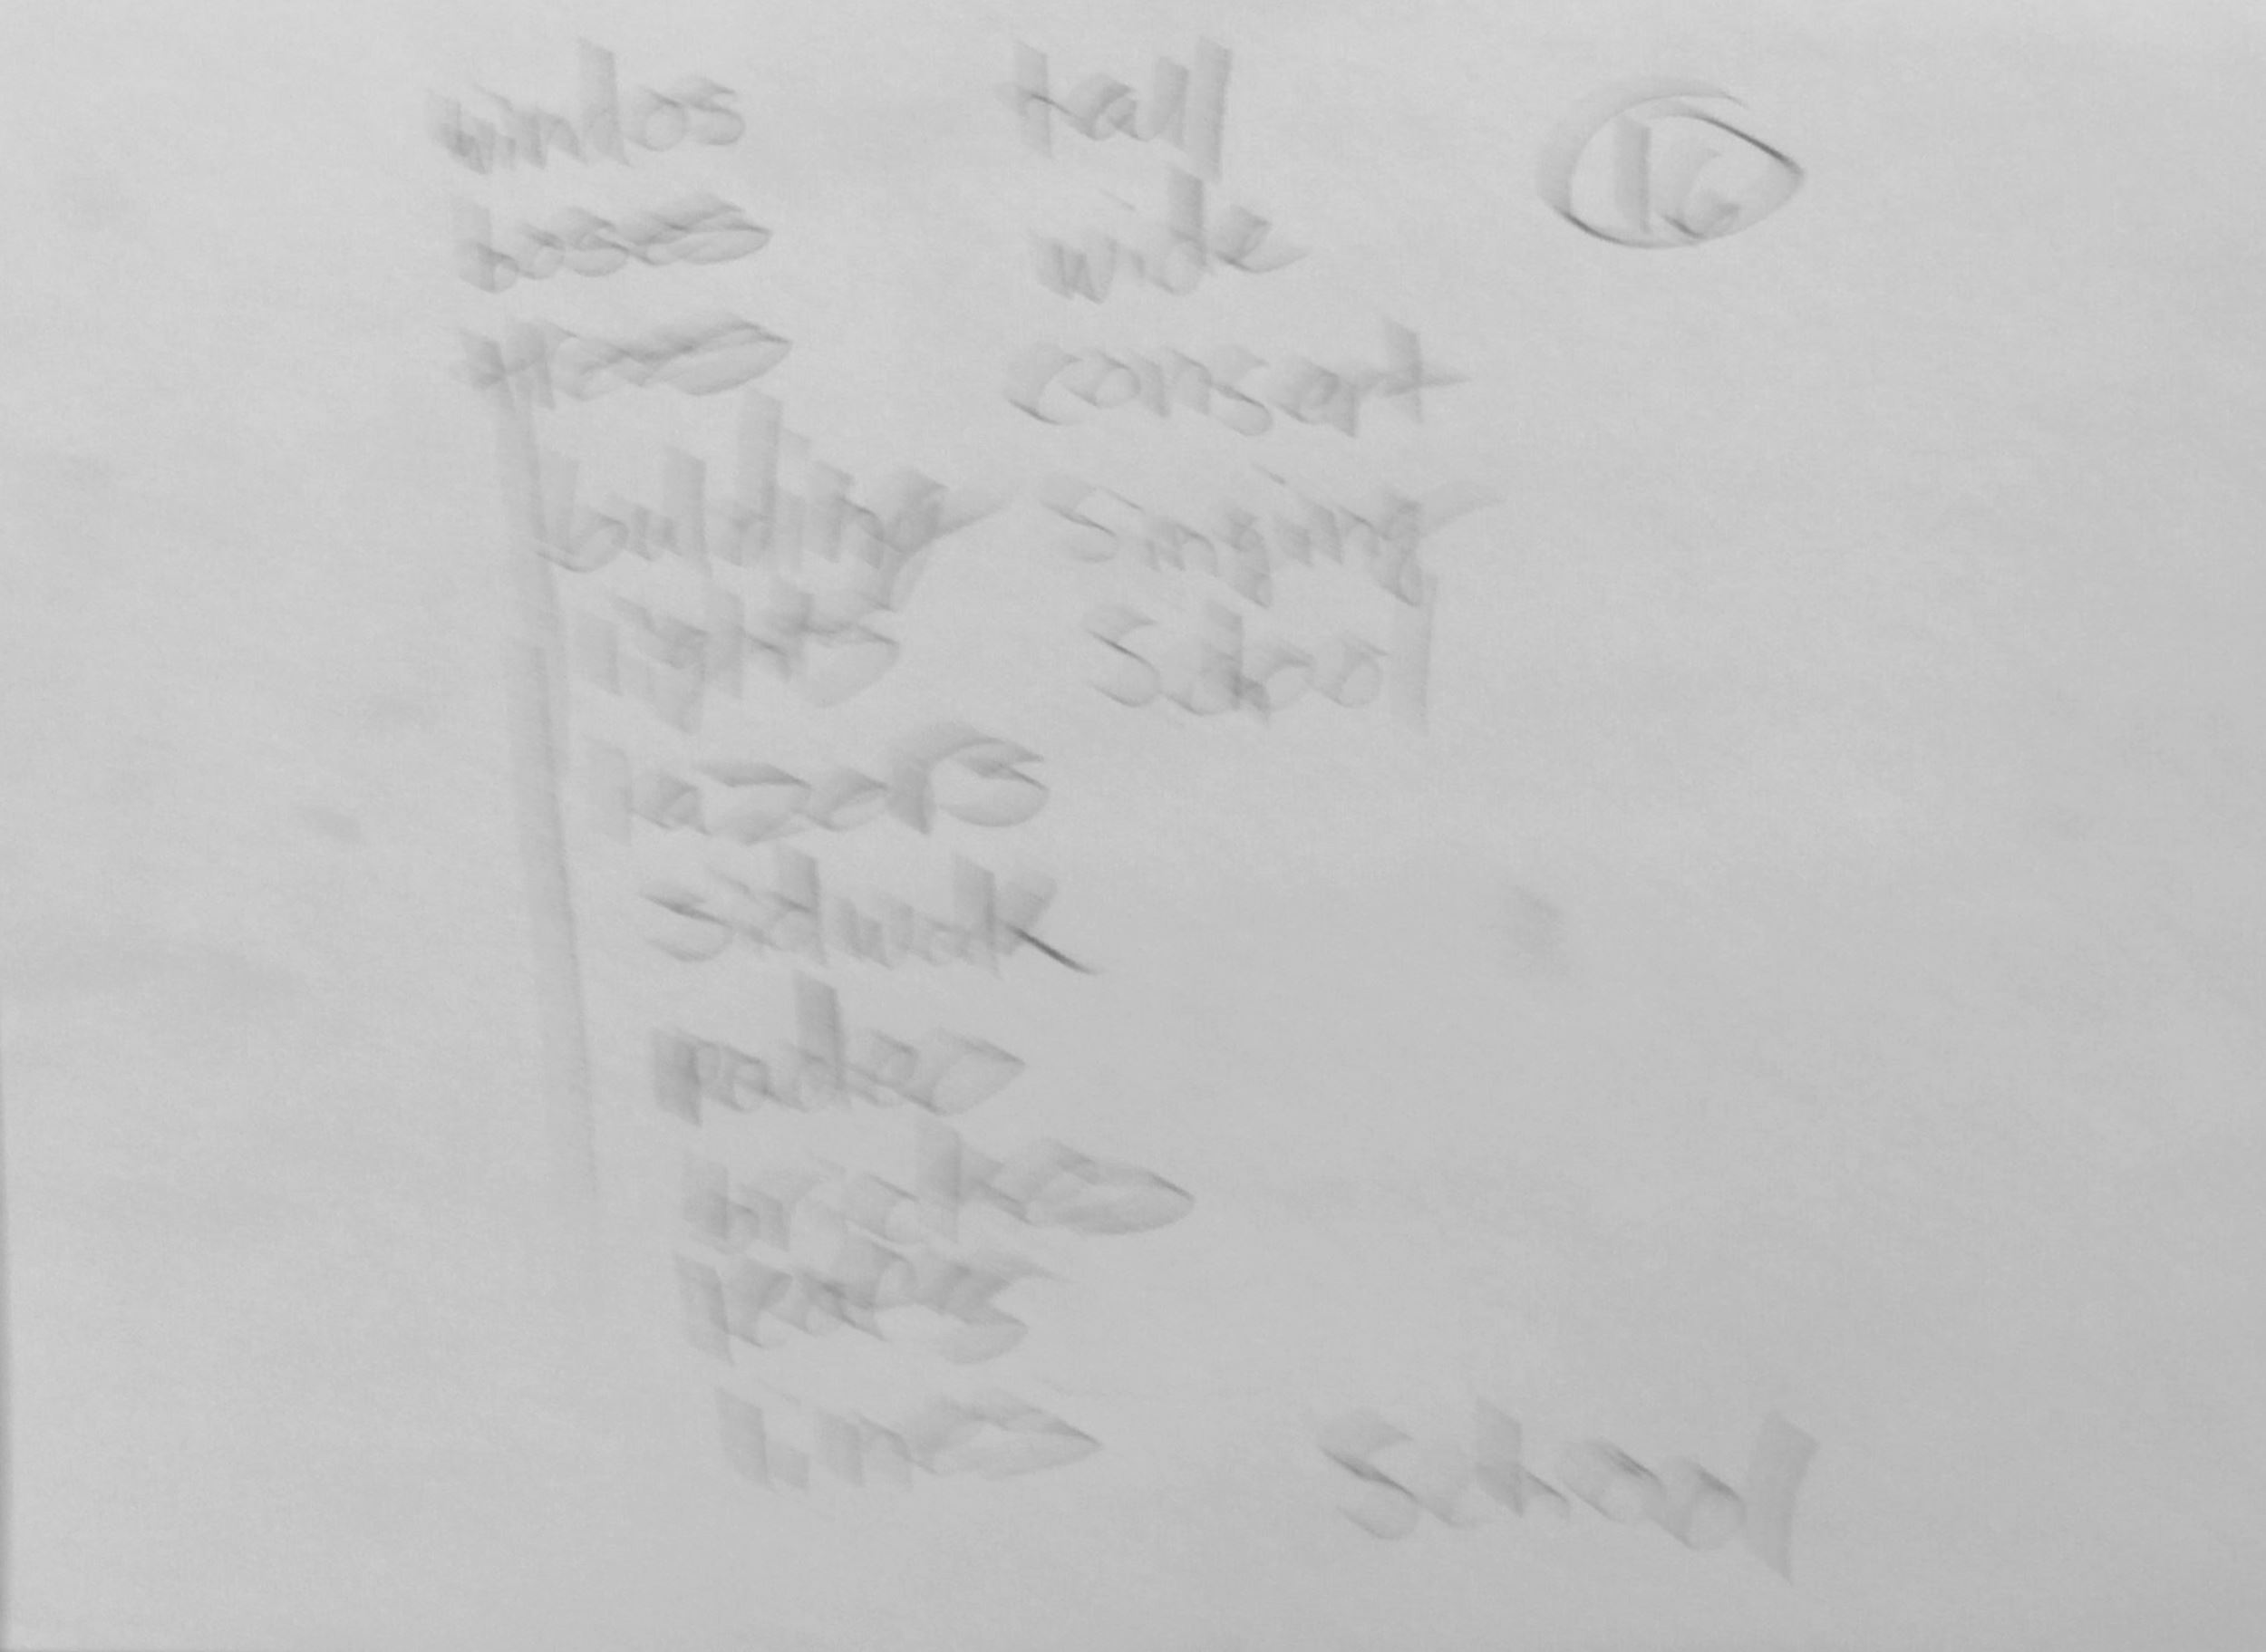 windos
boses
tres
bulding
lights
lazors
sidwalk
pader
brick
years
Lines
tall
wide
consert
singing
School
16
School